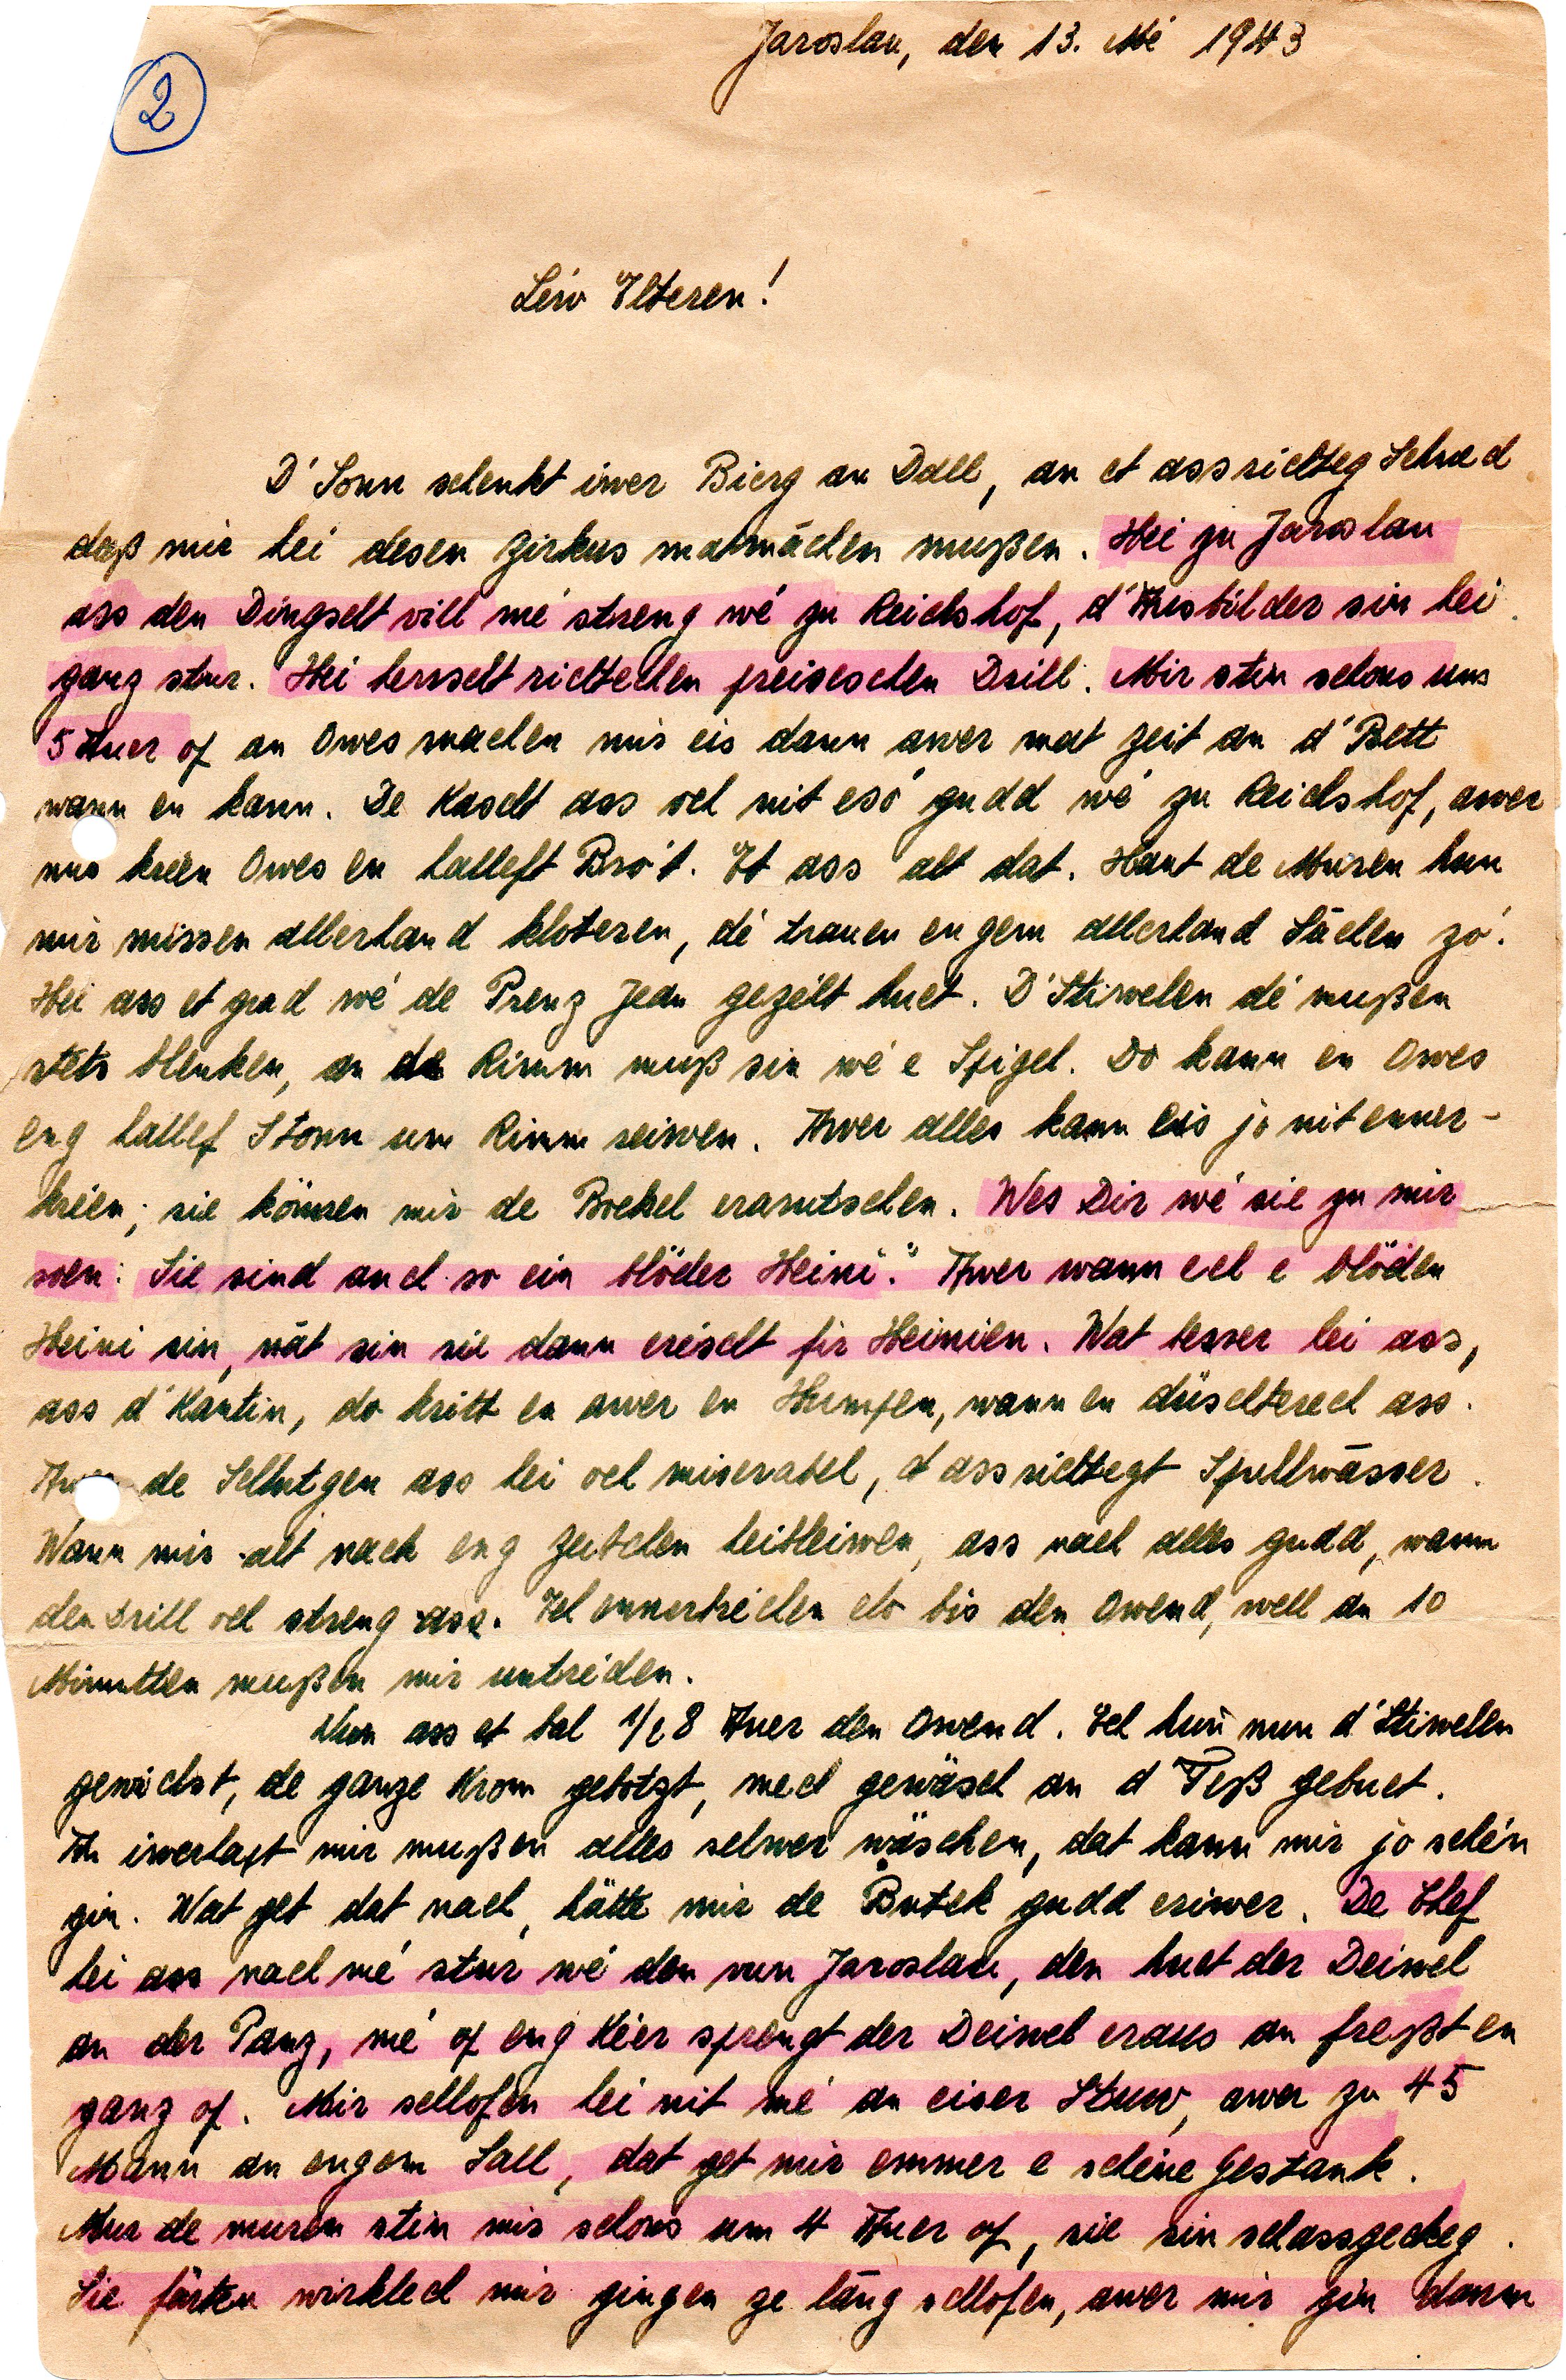 2
Jaroslau, den 13. Mé 1943
Léiw Elteren!
D'Sonn schenkt iwer Bierg an Dall, an et ass richteg Schued
daß mir hei desen Zirkus matmāchen mußen. Hei zu Jaroslau
ass den Dingscht vill mé streng wé zu Reichshof, d'Ausbilder sin hei
ganz stur. Hei herrscht richtechen preiseschen Drill. Mir stin schons um
5 Auer of an Owes machen mir eis dann awer mat Zeit an d'Bett
wann en kann. De Kascht ass och nit esó gudd wé zu Reichshof, awer
mir kréien Owes en halleft Bró't. Et ass alt dat. Haut de Muren hun
mir missen allerhand kloteren, dé trauen engem allerhand Sāchen zó.
Hei ass et grad wé de Prenz Jean gezéilt huet. D'Stiwelen dé mußen
stéts blenken, an de Rimm muß sin wé e Spigel. Do kann en Owes
eng hallef Stonn um Rimm reiwen. Awer alles kann eis jo nit enner-
kréien; sie können mir de Bockel erarutschen. Wes Dir wé sie zu mir
soen: Sie sind auch so ein blöder Heini." Awer wann ech e blöden
Heini sin, wāt sin sie dann eréischt fir Heinien. Wat besser hei ass,
ass d'Kantin, do kritt en awer en Humpen, wann en düschterech ass.
de Schlutgen ass hei och miserabel, d'ass richtegt Spullwāsser.
Wann mir alt nach eng Zeitchen heibleiwen, ass nach alles gudd, wann
den Drill och streng ass. Ech ennerbriechen elo bis den Owend, well an 10
Minutten mußen mir untrieden.
Nun ass et bal 1/2 8 Auer den Owend. Ech hun nun d'Stiwelen
gewichst, de ganze Krom gebotzt, mech gewäsch an d'Féß gebuet.
An iwerhapt mir mußen alles selwer wäschen, dat kann mir jo schéin
gin. Wat get dat nach, hätte mir de Butek gudd eriwer. De Chef
hei ass nach mé stur wé den vun Jaroslau, den huet der Deiwel
an der Panz, mé of eng Kéier sprengt der Deiwel eraus an freßt en
ganz of. Mir schlofen hei nit mé an eiser Stuw, awer zu 45
Mann an engem Sall, dat get mir emmer e schéine Gestank.
Mur de muren stin mir schons um 4 Auer of, sie sin schassgeckeg.
Sie färten wirklech mir gingen ze lāng schlofen, awer mir gin dann